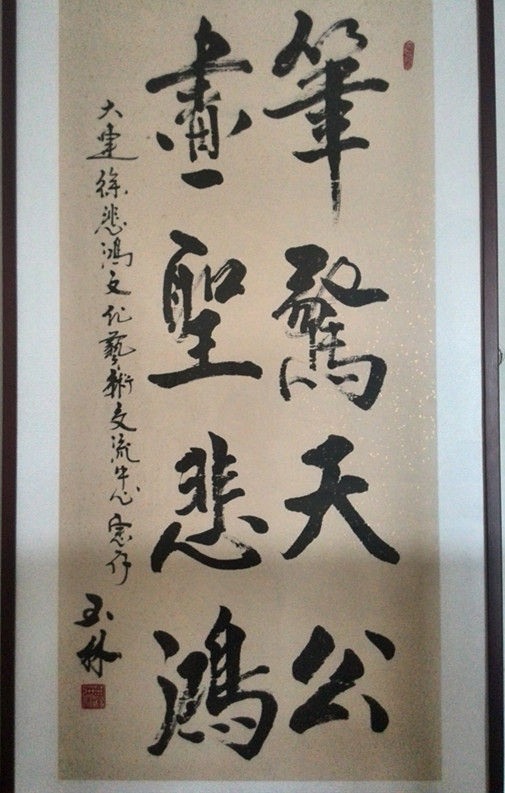 筆驚天公
畫聖悲鴻
大連徐悲鴻文化藝術交流中心惠存
玉林